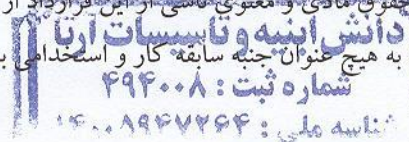 حقوق مادی و معنوی ناشی از این قرارداد از
دانش ابنیه و تاسیسات آرتا
به هیچ عنوان جنبه سابقه کار و استخدامی
شماره ثبت : ۴۹۴۰۰۸
شناسه ملی :